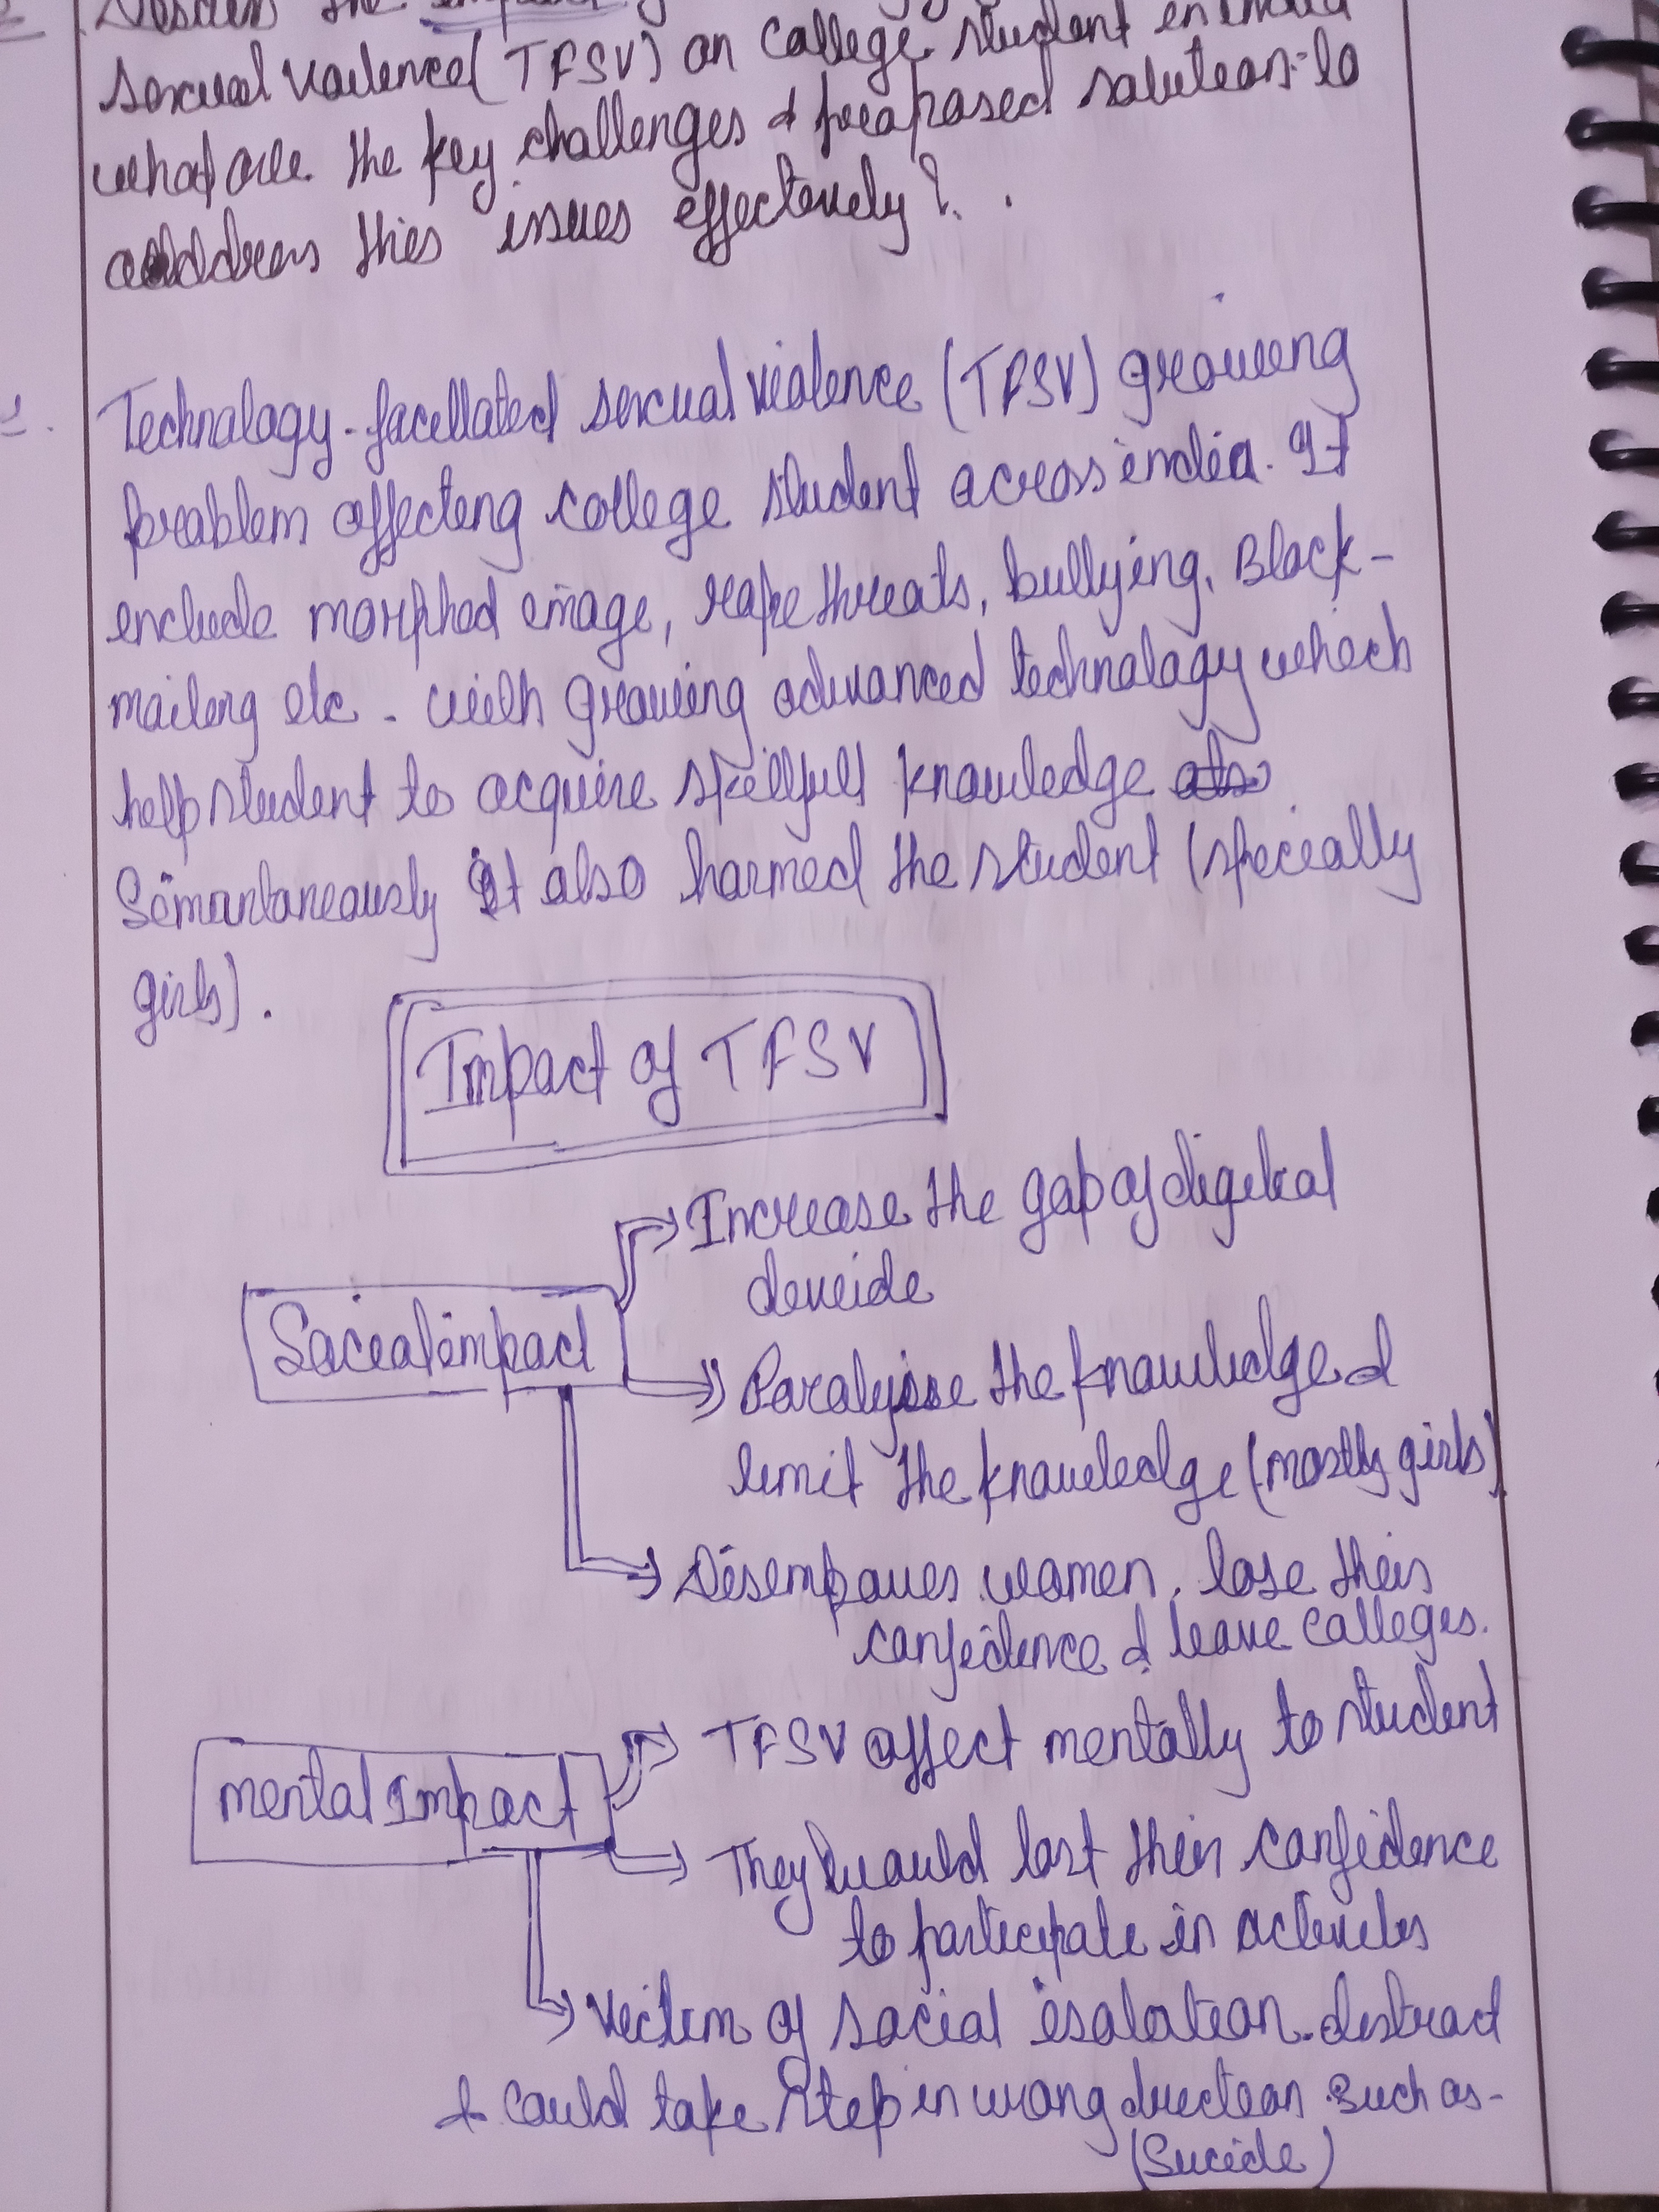 Discuss the impact
sexual voilence (TFSV) on college student in India
what are the key challenges & proposed solution to
address this issues effectively?
Technology-facillated sexual violence (TFSV) growing
problem affecting college student across india. It
include morphed image, rape threats, bullying, Black-
mailing etc. with growing advanced technology which
help student to acquire skillfull knowledge
Simantaneously it also harmed the student (specially
girls).
Impact of TFSV
Increase the gap of digital
deveide
Social impact
Paralysise the knowledge &
limit the knowledge (mostly girls)
Disempowers women, lose their
confidence & leave colleges.
TFSV affect mentally to student
mental Impact
They would lost their confidence
to participate in activities
Victim of social isolation. distract
& could take step in wrong direction such as -
(Sucide)